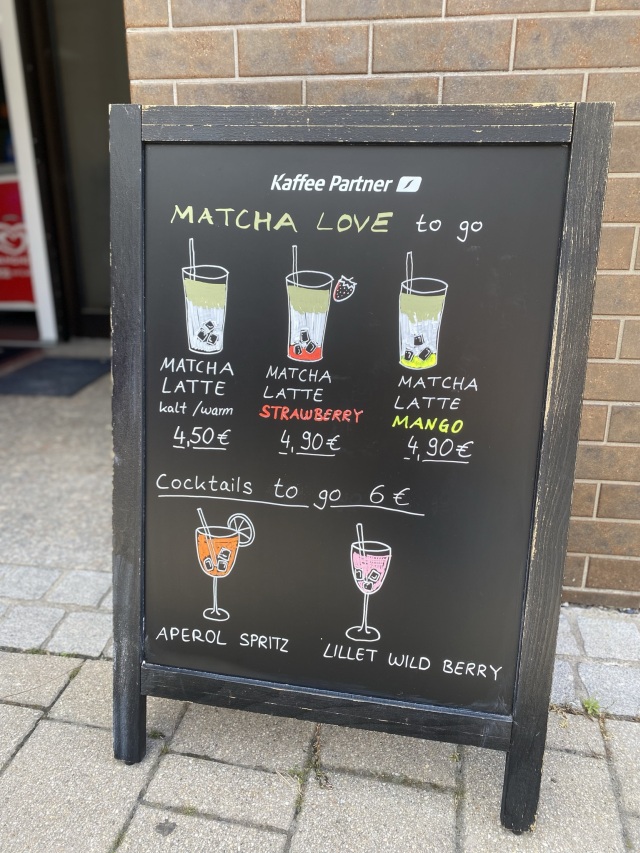 Kaffee Partner
MATCHA LOVE to go
MATCHA
LATTE
kalt / warm
4,50 €
MATCHA
LATTE
STRAWBERRY
4,90 €
MATCHA
LATTE
MANGO
4,90 €
Cocktails to go 6 €
APEROL SPRITZ
LILLET WILD BERRY